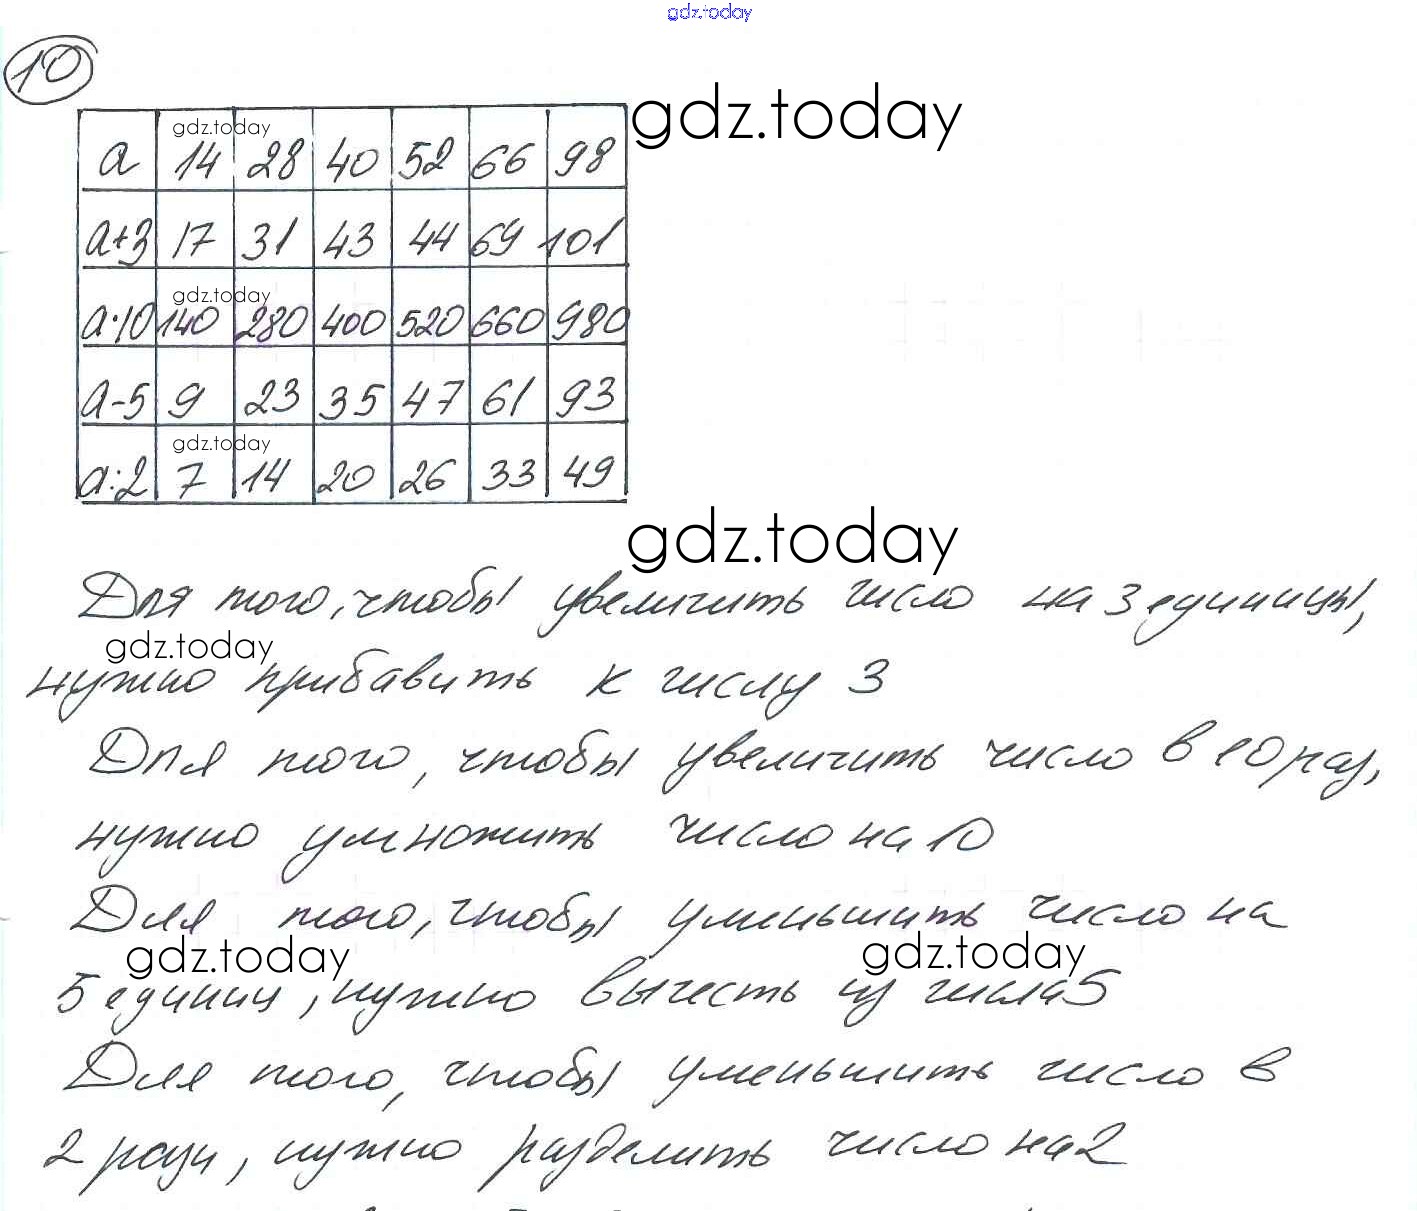 gdz.today
10
gdz.today
gdz.today
a 14 28 40 52 66 98
a+3 17 31 43 44 69 101
gdz.today
a·10 140 280 400 520 660 980
a-5 9 23 35 47 61 93
gdz.today
a:2 7 14 20 26 33 49
gdz.today
Для того, чтобы увеличить число на 3 единицы,
gdz.today
нужно прибавить к числу 3
Для того, чтобы увеличить число в 10 раз,
нужно умножить число на 10
Для того, чтобы уменьшить число на
gdz.today gdz.today
5 единиц, нужно вычесть из числа 5
Для того, чтобы уменьшить число в
2 раза, нужно разделить число на 2